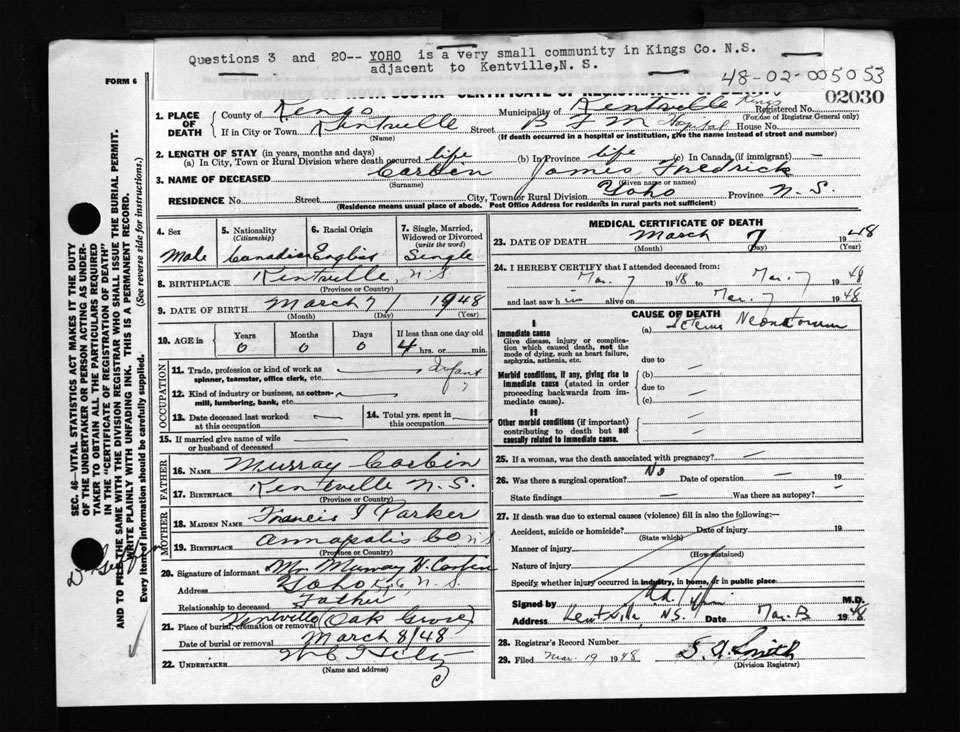 Questions 3 and 20-- YOHO is a very small community in Kings Co. N.S.
adjacent to Kentville, N. S.
48-02-005053
FORM 6
PROVINCE OF NOVA SCOTIA CERTIFICATE OF REGISTRATION OF DEATH
02030
1. PLACE OF DEATH
County of Kings Municipality of Kentville Kings Registered No.
(For use of Registrar General only)
If in City or Town Kentville Street B F M Hospital House No.
(Name) (If death occurred in a hospital or institution, give the name instead of street and number)
2. LENGTH OF STAY (in years, months and days)
(a) In City, Town or Rural Division where death occurred life (b) in Province life (c) In Canada (if immigrant) —
3. NAME OF DECEASED Corbin James Fredrick
(Surname) (Given name or names)
RESIDENCE No. Street City, Town or Rural Division Yoho Province N-S.
(Residence means usual place of abode. Post Office Address for residents in rural parts not sufficient)
4. Sex
Male
5. Nationality
(Citizenship)
Canadian
6. Racial Origin
English
7. Single, Married,
Widowed or Divorced
(write the word)
Single
8. BIRTHPLACE Kentville, N.S.
(Province or Country)
9. DATE OF BIRTH March 7 1948
(Month) (Day) (Year)
10. AGE in
Years Months Days If less than one day old
0 0 0 4 hrs. or min.
OCCUPATION
11. Trade, profession or kind of work as
spinner, teamster, office clerk, etc. — Infant
12. Kind of industry or business, as cotton-
mill, lumbering, bank, etc.
13. Date deceased last worked
at this occupation —
14. Total yrs. spent in
this occupation
15. If married give name of wife
or husband of deceased
FATHER
16. NAME Murray Corbin
17. BIRTHPLACE Kentville N.S.
(Province or Country)
MOTHER
18. MAIDEN NAME Francis I Parker
19. BIRTHPLACE Annapolis Co N.S.
(Province or Country)
20. Signature of informant Mr Murray H. Corbin
Address Yoho N.S.
Relationship to deceased Father
21. Place of burial, cremation or removal Kentville (Oak Grove)
Date of burial or removal March 8/48
22. UNDERTAKER
(Name and address)
MEDICAL CERTIFICATE OF DEATH
23. DATE OF DEATH March 7 1948
(Month) (Day)
24. I HEREBY CERTIFY that I attended deceased from:
Mar. 7 1948 to Mar. 7 1948
and last saw him alive on Mar. 7 1948
CAUSE OF DEATH
I
Immediate cause
Give disease, injury or compli-
cation which caused death, not the
mode of dying, such as heart failure,
asphyxia, asthenia, etc.
(a) Icterus Neonatorum
due to
Morbid conditions, if any, giving rise to
immediate cause (stated in order
proceeding backwards from im-
mediate cause).
(b) —
due to —
(c) —
II
Other morbid conditions (if important)
contributing to death but not
causally related to immediate cause.
25. If a woman, was the death associated with pregnancy? —
26. Was there a surgical operation? No Date of operation — 19
State findings — Was there an autopsy?
27. If death was due to external causes (violence) fill in also the following:—
Accident, suicide or homicide? Date of injury 19
(State which)
Manner of injury
(How sustained)
Nature of injury
Specify whether injury occurred in industry, in home, or in public place
Signed by M.D.
Address Kentville, N.S. Date Mar. 1948
28. Registrar's Record Number
29. Filed Mar. 19 1948 Smith
(Division Registrar)
SEC. 46—VITAL STATISTICS ACT MAKES IT THE DUTY
OF THE UNDERTAKER OR PERSON ACTING AS UNDER-
TAKER TO OBTAIN ALL THE PARTICULARS REQUIRED
IN THE "CERTIFICATE OF REGISTRATION OF DEATH"
AND TO FILE THE SAME WITH THE DIVISION REGISTRAR WHO SHALL ISSUE THE BURIAL PERMIT.
WRITE PLAINLY WITH UNFADING INK. THIS IS A PERMANENT RECORD.
Every item of information should be carefully supplied. (See reverse side for instructions.)